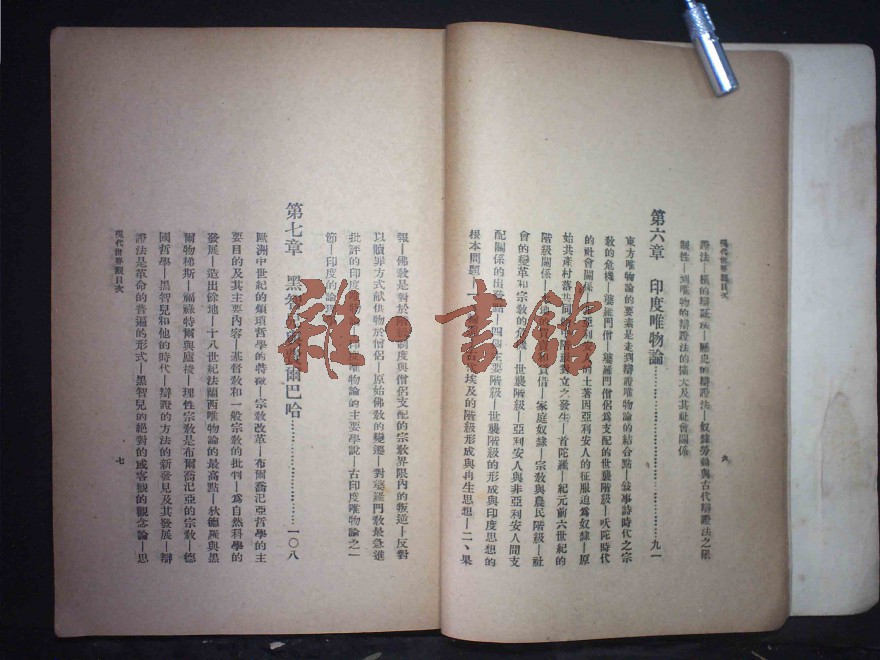 現代世界觀目次
證法—橫的辯證法—歷史的辯證法—奴隸勞動與古代辯證法之限
制性—到唯物的辯證法的擴大及其社會關係
第六章 印度唯物論……九一
東方唯物論的要素是走到辯證唯物論的結合點—敍事詩時代之宗
教的危機—婆羅門僧—婆羅門僧侶支配的世襲階級—吠陀時代
的社會關係 亞利安人 土著因亞利安人的征服迫爲奴隸—原
始共產村落共同 階級對立之發生—首陀羅—紀元前六世紀的
階級關係 借—家庭奴隸—宗教與農民階級—社
會的變革和宗教的危機—世襲階級—亞利安人與非亞利安人間支
配關係的出發點—四個主要階級—世襲階級的形成與印度思想的
根本問題— 古代埃及的階級形成與再生思想—二、果
報—佛教是對於階級制度與僧侶支配的宗教界限內的叛逆—反對
以贖罪方式獻供物於僧侶—原始佛教的變遷—對婆羅門教最急進
批評的印度唯物 唯物論的主要學說—古印度唯物論之一
節—印度的論理
第七章 黑智兒 費爾巴哈……一〇八
歐洲中世紀的煩瑣哲學的特徵—宗教改革—布爾喬亞哲學的主
要目的及其主要內容—基督教和一般宗教的批判—爲自然科學的
發展—造出餘地—十八世紀法蘭西唯物論的最高點—狄德羅與黑
爾物梯斯—福祿特爾與盧梭—理性宗教是布爾喬亞的宗教—德
國哲學—黑智兒和他的時代—辯證的方法的新發見及其發展—辯
證法是革命的普遍的形式—黑智兒的絕對的或客觀的觀念論—思
現代世界觀目次
七
六
雜·書館